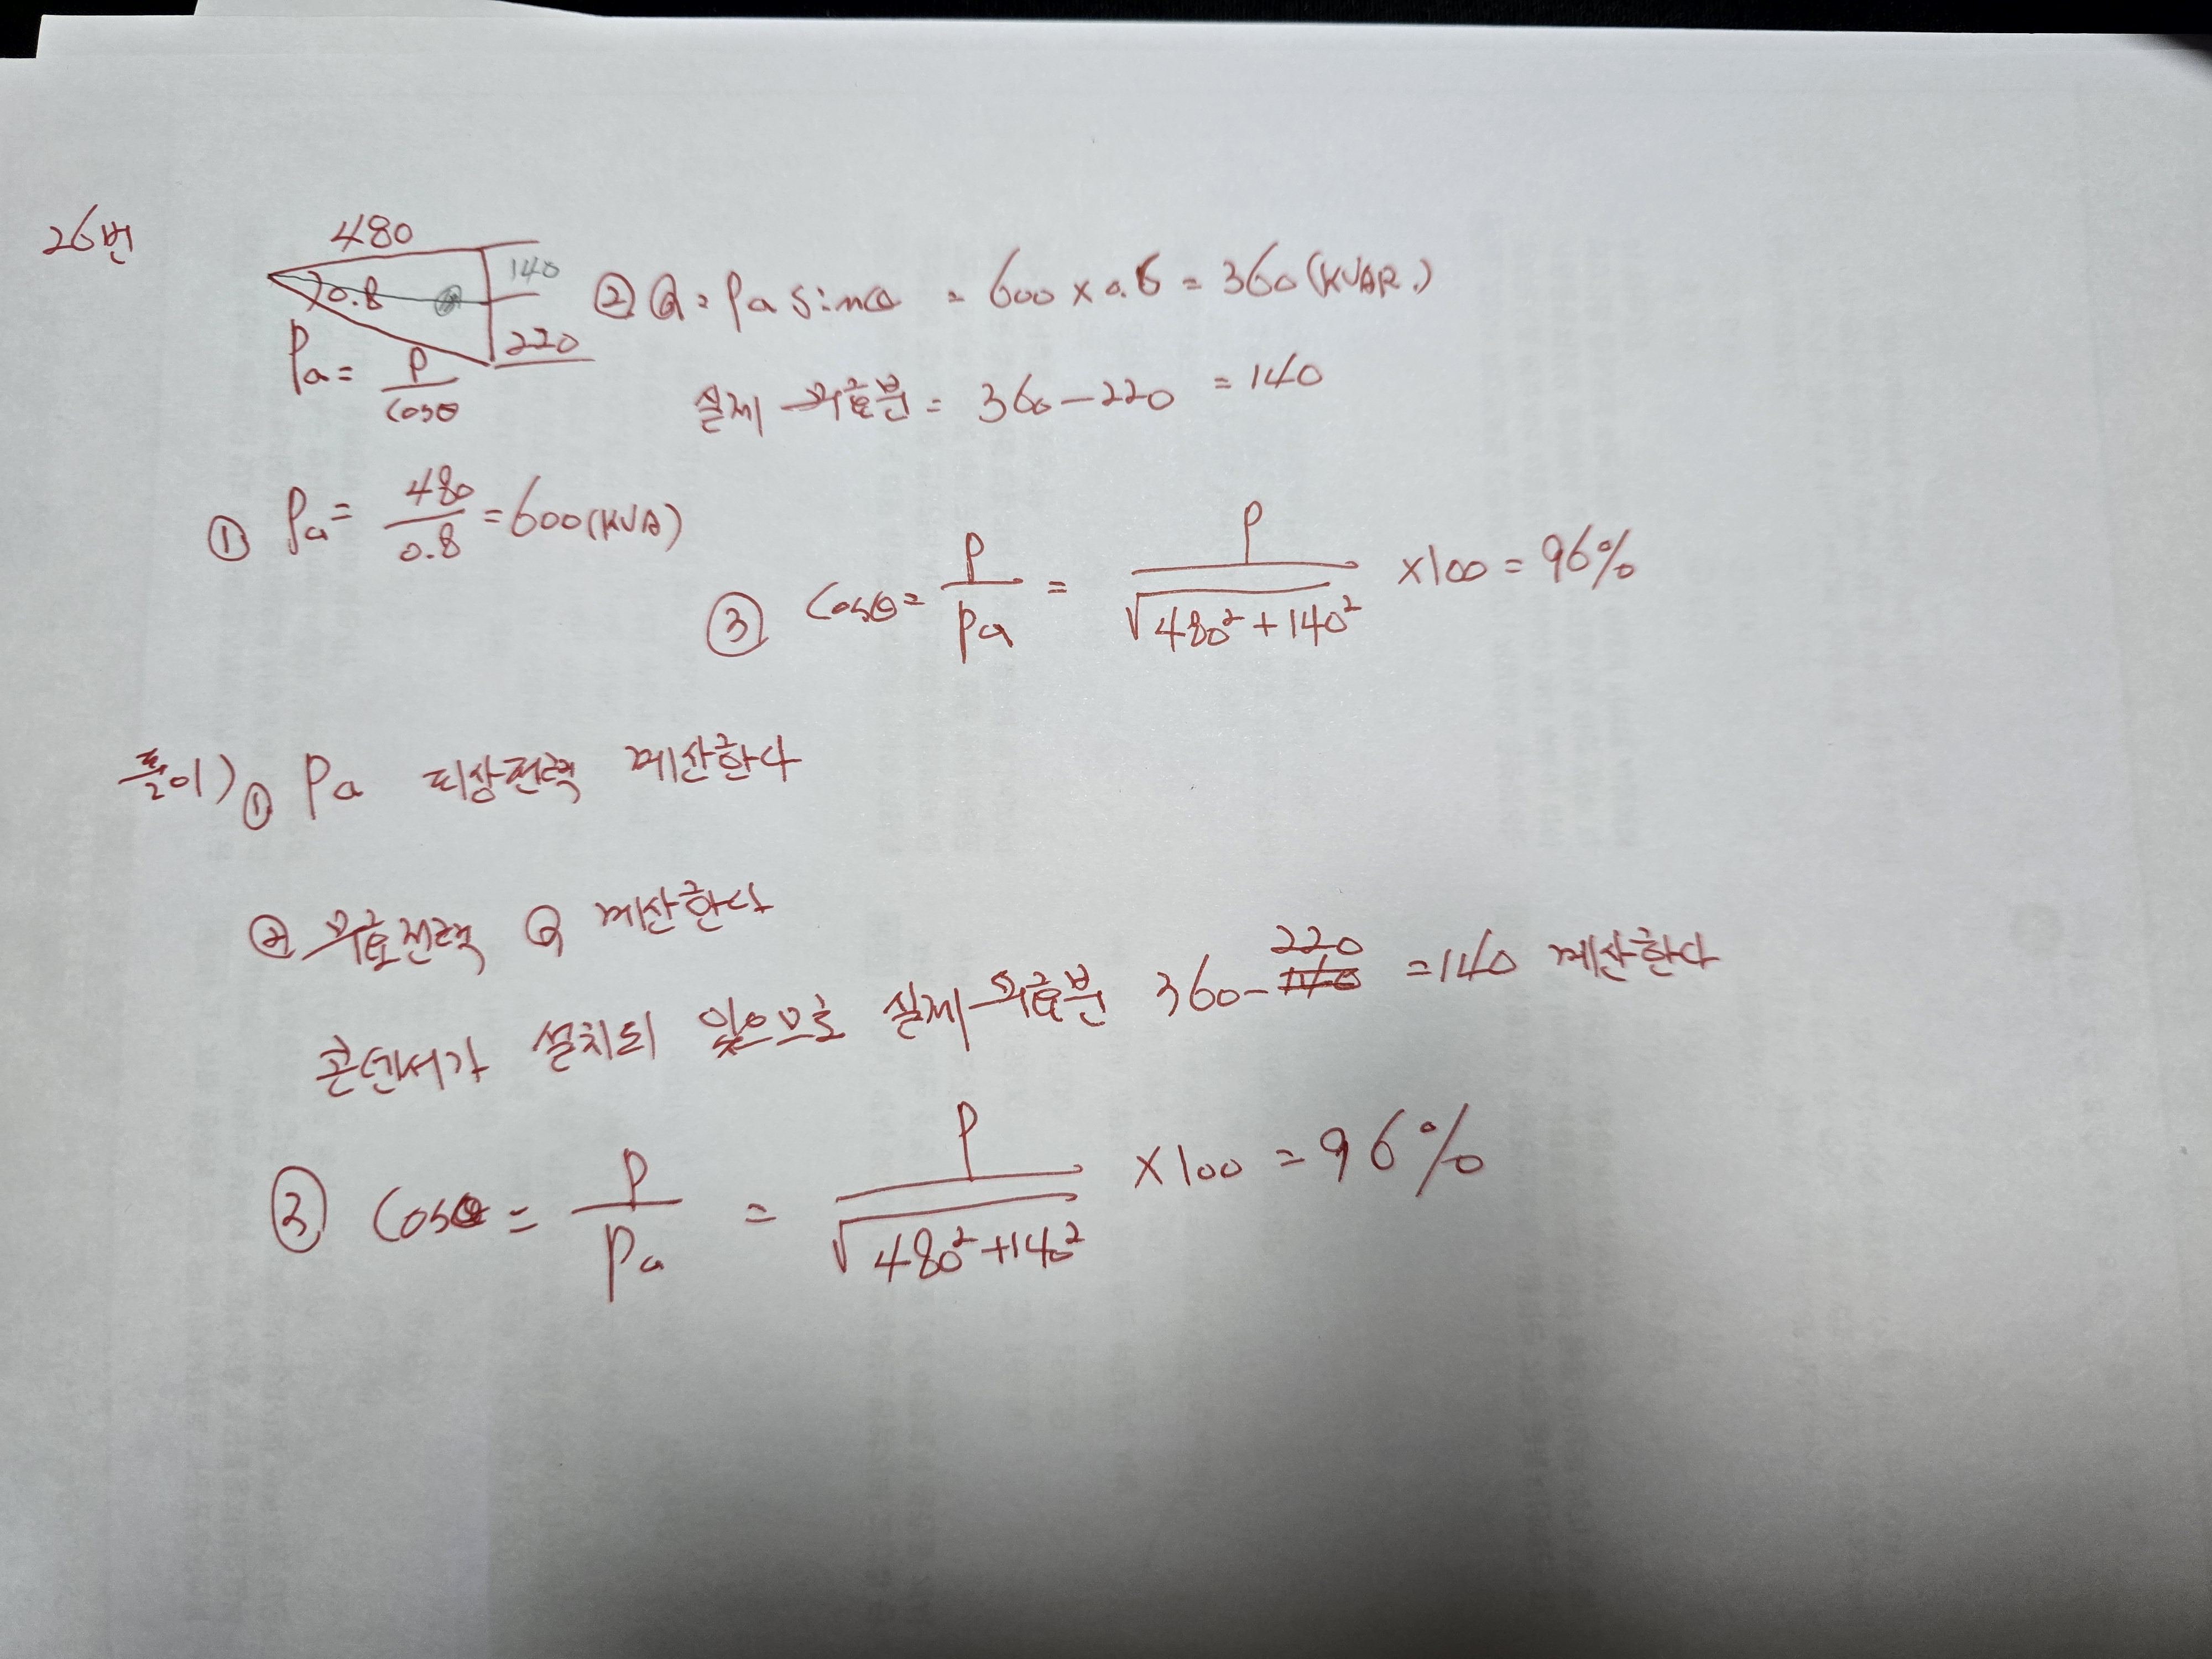 26번
480
140
0.8
220
Pa = P / cosθ
② Q = Pa sinθ = 600 × 0.6 = 360 (KVAR.)
실제 무효분 = 360 - 220 = 140
① Pa = 480 / 0.8 = 600 (KVA)
③ cosθ = P / Pa = P / √480² + 140² ×100 = 96%
풀이) ① Pa 피상전력 계산한다
② 무효전력 Q 계산한다
콘덴서가 설치되 있으므로 실제 무효분 360 - 220 = 140 계산한다
③ cosθ = P / Pa = P / √480² + 140² ×100 = 96%